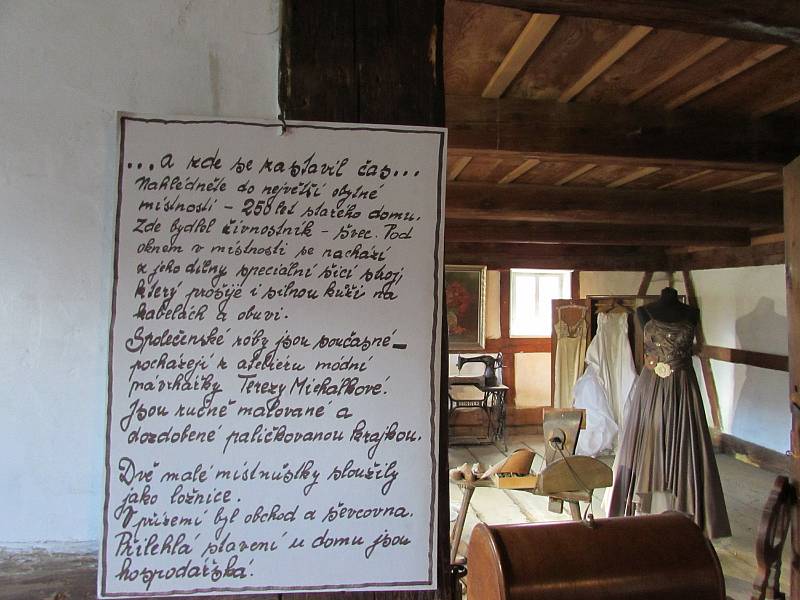 ...a zde se zastavil čas...
Nahlédněte do největší obytné
místnosti - 250 let starého domu.
Zde bydlel živnostník - švec. Pod
oknem v místnosti se nachází
z jeho dílny speciální šicí stroj,
který prošije i silnou kůži na
kabelách a obuvi.
Společenské róby jsou současné -
pocházejí z ateliéru módní
návrhářky Terezy Michálkové.
Jsou ručně malované a
dozdobené paličkovanou krajkou.
Dvě malé místnůstky sloužily
jako ložnice.
V přízemí byl obchod a ševcovna.
Přilehlá stavení u domu jsou
hospodářská.